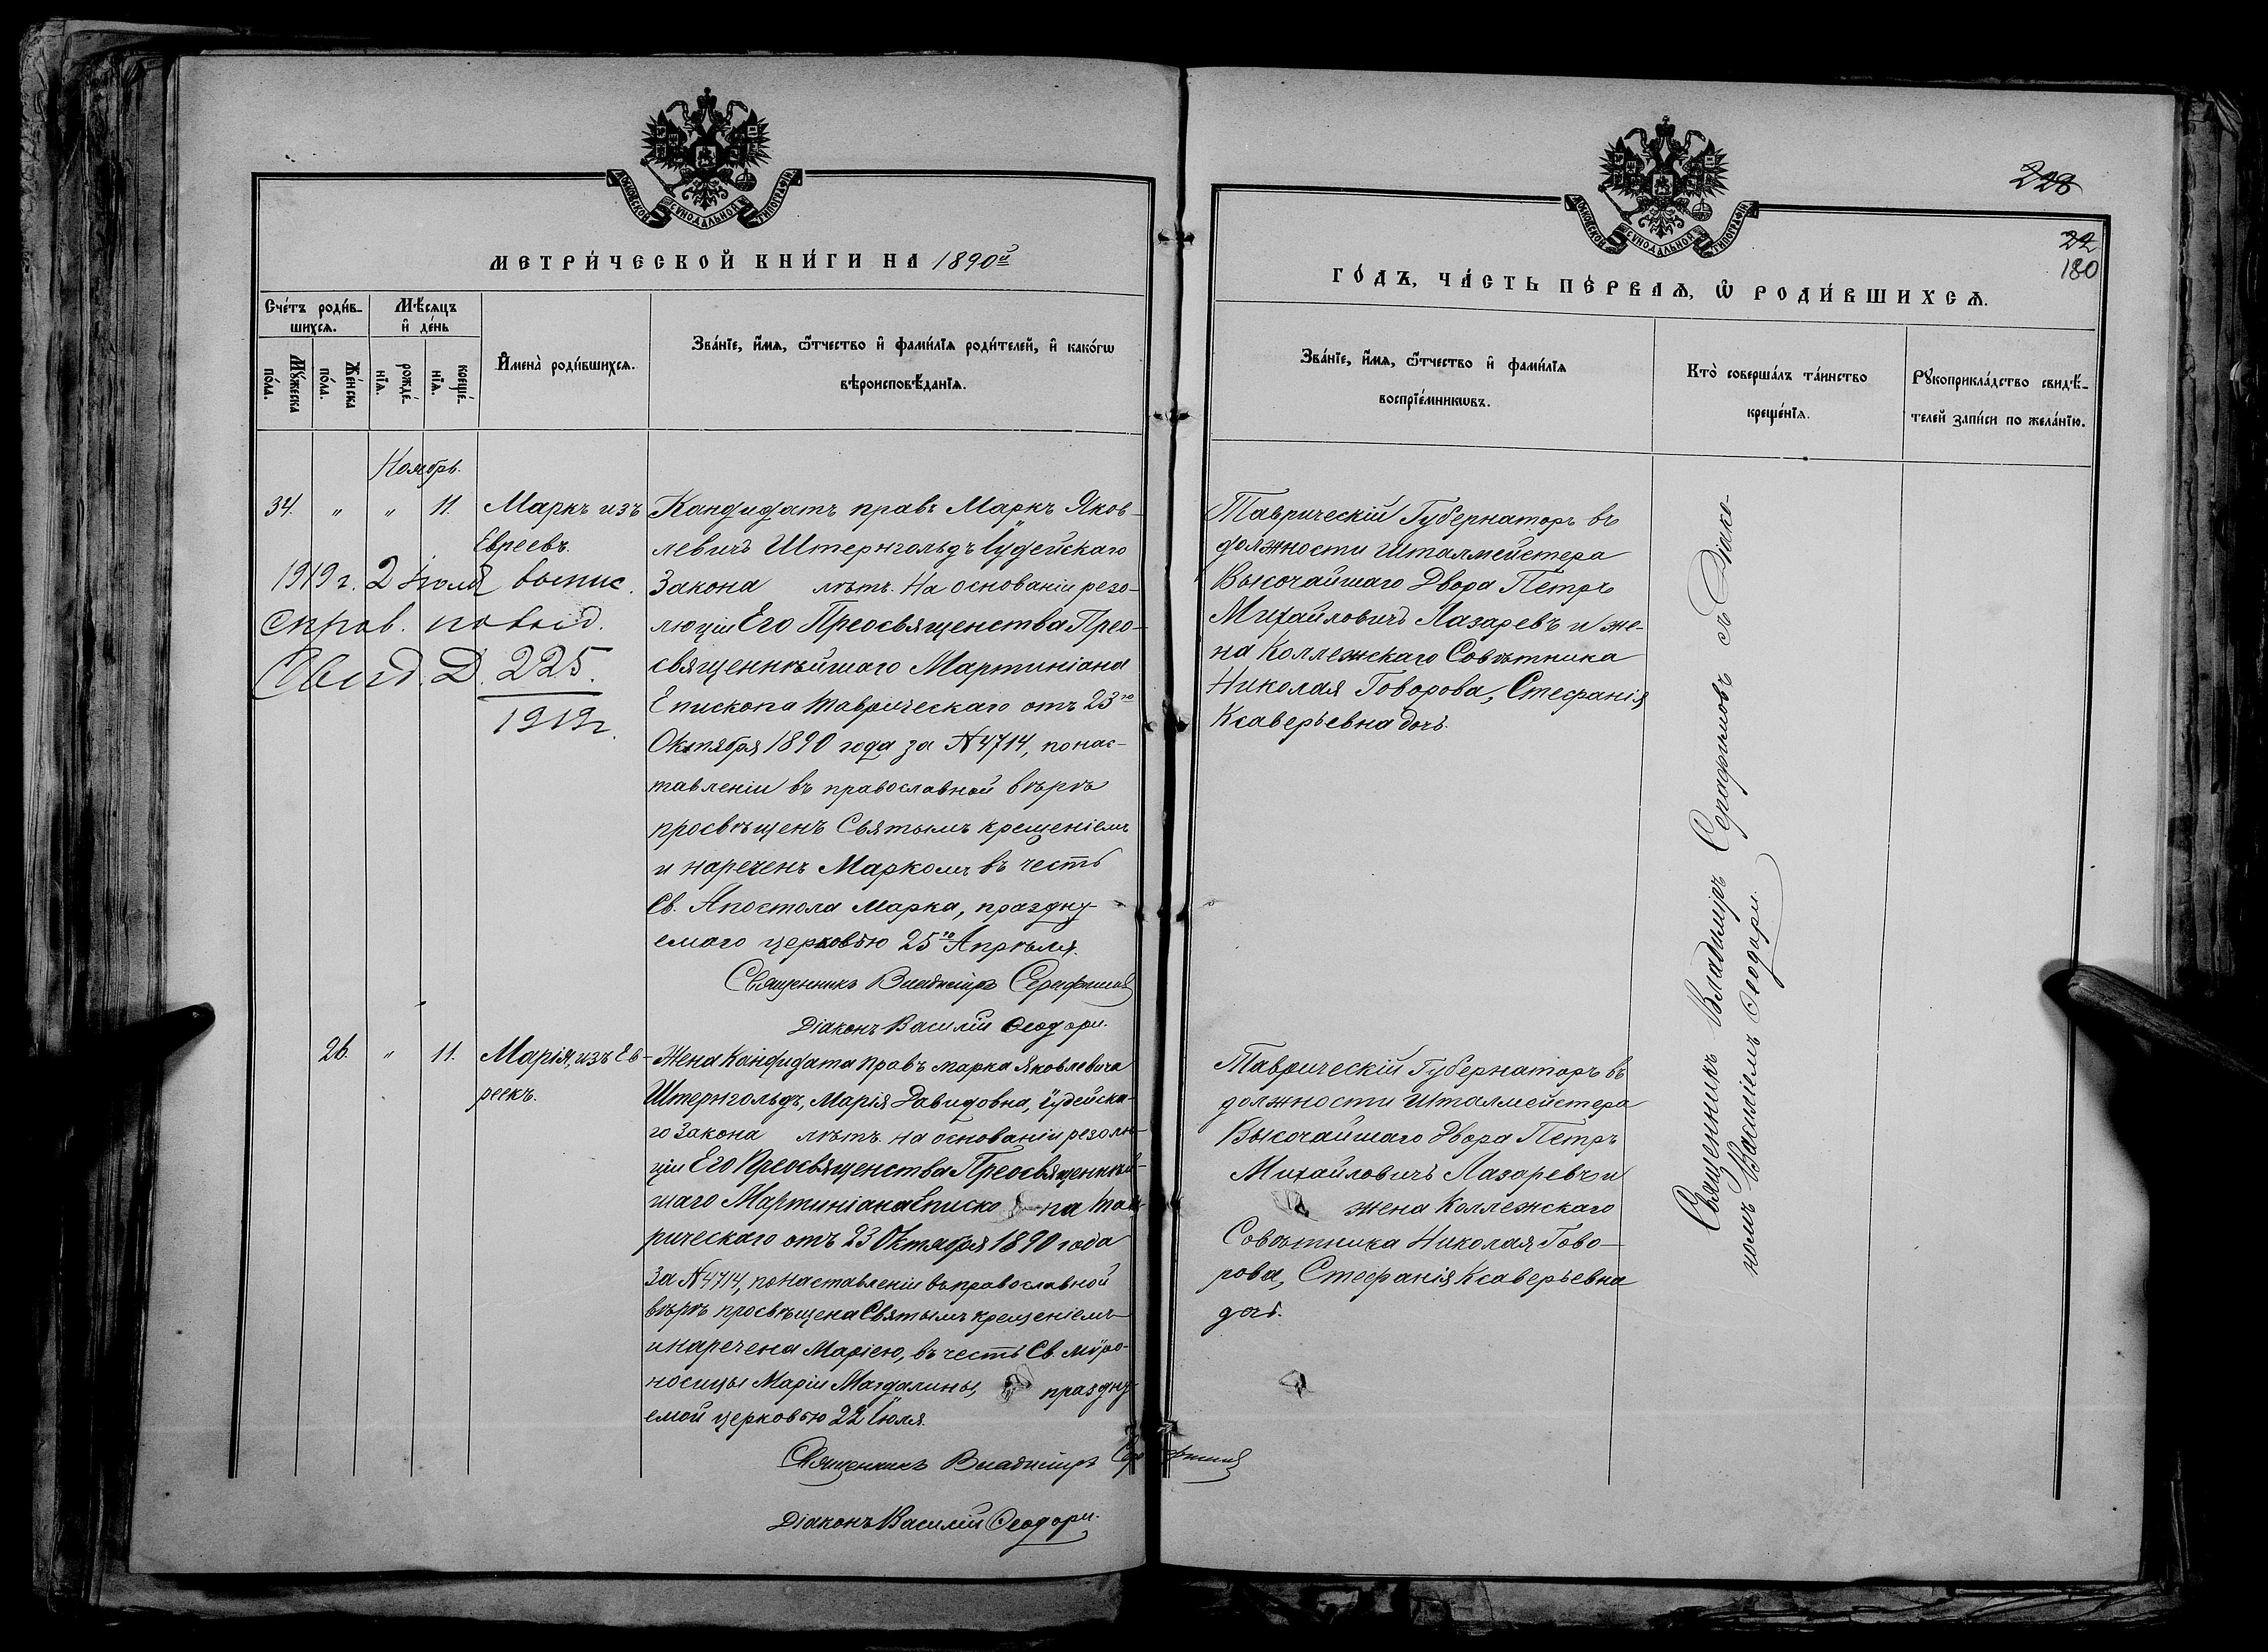 МОСКОВСКОЙ СУНОДАЛЬНОЙ ТИПОГРАФІИ
МЕТРИ́ЧЕСКОЙ КНИ́ГИ НА 1890й
Сче́тъ роди́в-
шихсѧ.
Мѣ́сѧцъ
и҆ де́нь
И҆мена̀ роди́вшихсѧ.
Зва́нїе, и҆́мѧ, ѻ҆́тчество и҆ фами́лїѧ роди́телей, и҆ како́гѡ
вѣроисповѣ́данїѧ.
Мꙋ́жеска
по́ла.
Же́нска
по́ла.
рожде́-
нїѧ.
креще́-
нїѧ.
Ноябрь.
34. " " 11. Маркъ изъ
Евреевъ.
1919 г. 2 Июля выпис.
справ. по выд.
Свид. Д. 225.
1919г.
Кандидатъ правъ Маркъ Яков-
левичъ Штернгольдъ Іудейскаго
Закона лѣтъ. На основаніи резо-
люціи Его Преосвященства Прео-
священнѣйшаго Мартиніана
Епископа Таврическаго отъ 23го
Октября 1890 года за №4714, по нас-
тавленіи въ православной вѣрѣ
просвѣщенъ Святымъ крещеніемъ
и нареченъ Маркомъ въ честь
Св. Апостола Марка, праздну-
емаго церковью 25го Апрѣля.
Священникъ Владиміръ Серафимовъ
Діаконъ Василій Ѳеодори.
26. " 11. Марія, изъ Ев-
реекъ.
Жена Кандидата Правъ Марка Яковлевича
Штернгольдъ, Марія Давидовна, іудейска-
го Закона лѣтъ. на основаніи резолю-
ціи Его Преосвященства Преосвященнѣй-
шаго Мартиніана Еписко па Тав-
рическаго отъ 23 Октября 1890 года
За №4714, по наставленіи въ православной
вѣрѣ просвѣщена Святымъ крещеніемъ
и наречена Маріею, въ честь Св. мѵро-
носицы Маріи Магдалины, праздну-
емой церковью 22 Іюля.
Священникъ Владиміръ Серафимовъ
Діаконъ Василій Ѳеодори.
МОСКОВСКОЙ СУНОДАЛЬНОЙ ТИПОГРАФІИ
228
22
180
ГО́ДЪ, ЧА́СТЬ ПЕ́РВАѦ, Ѽ РОДИ́ВШИХСѦ.
Зва́нїе, и҆́мѧ, ѻ҆́тчество и҆ фами́лїѧ
воспрїе́мникѡвъ.
Кто̀ соверша́лъ та́инство
креще́нїѧ.
Рꙋкоприкла́дство свидѣ́-
телей за́писи по жела́нїю.
Таврическій Губернаторъ въ
должности Шталмейстера
Высочайшаго Двора Петръ
Михайловичъ Лазаревъ и же-
на Коллежскаго Совѣтника
Николая Говорова, Стефанія
Ксаверьевна дочь.
Священникъ Владиміръ Серафимовъ съ Діако-
номъ Василіемъ Ѳеодори.
Таврическій Губернаторъ въ
должности Шталмейстера
Высочайшаго Двора Петръ
Михайловичъ Лазаревъ и
жена Коллежскаго
Совѣтника Николая Гово-
рова, Стефанія Ксаверьевна
дочь.